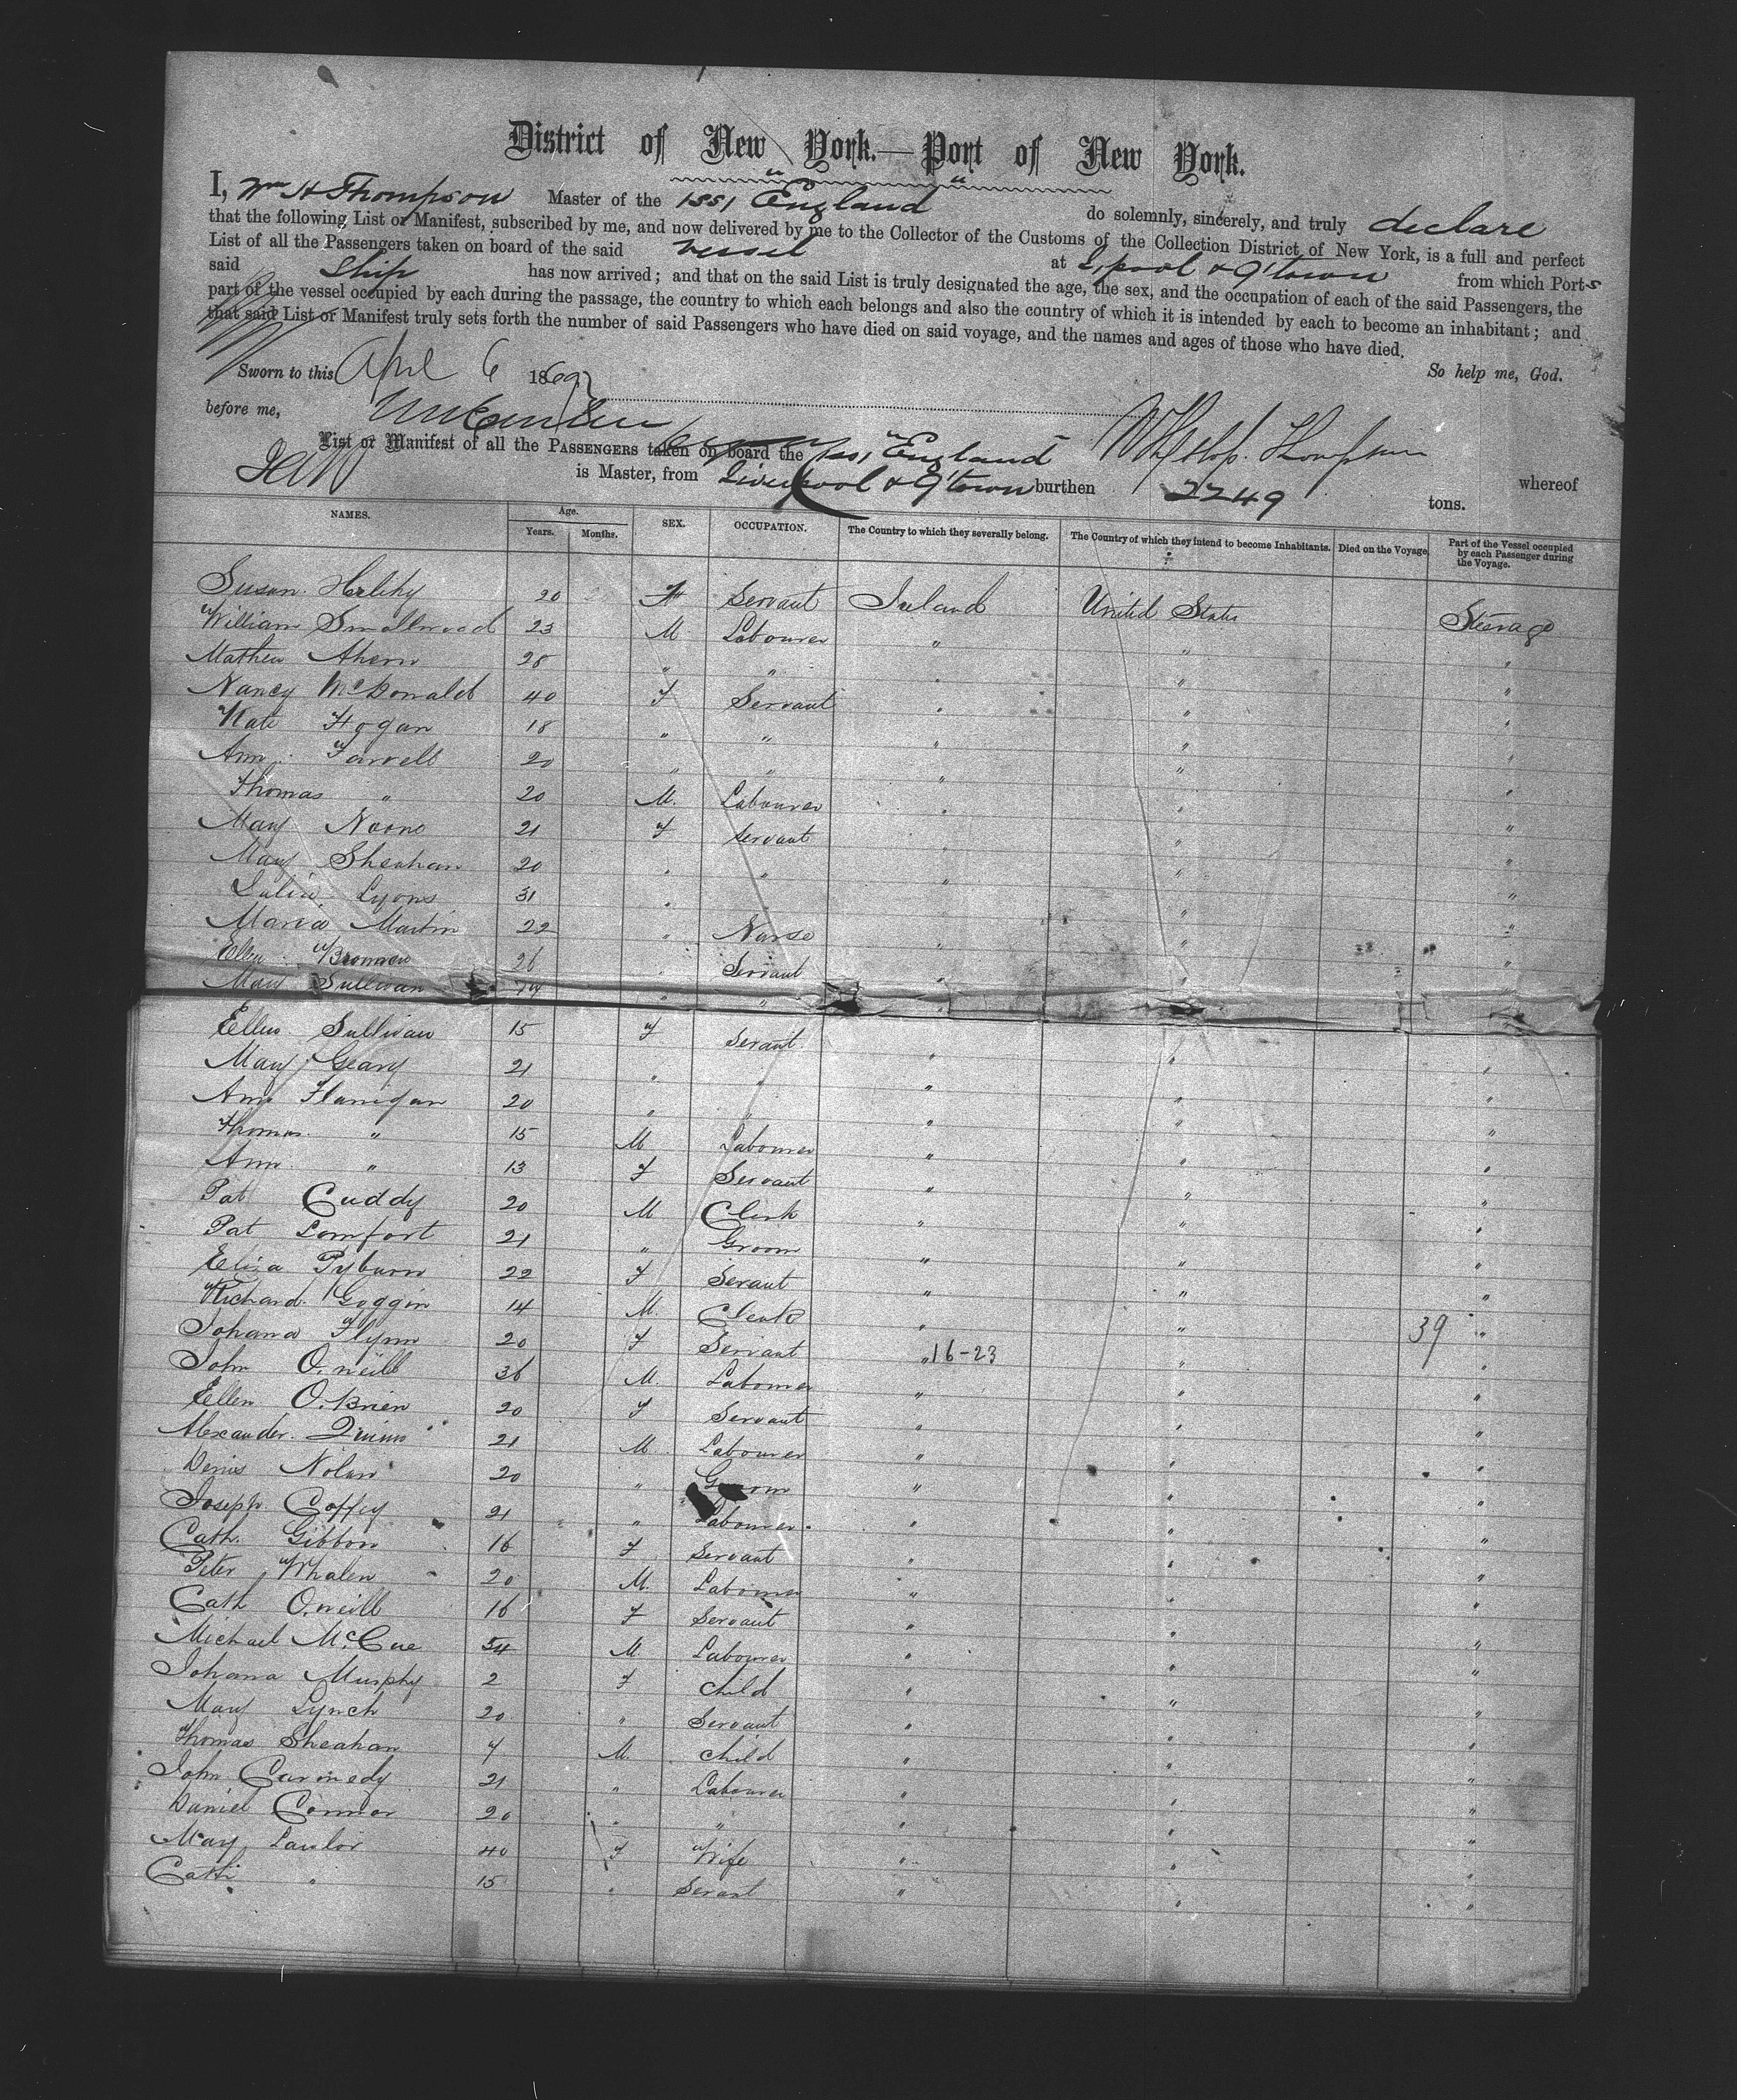 District of New York.—Port of New York.
I, Wm H Thompson Master of the SS "England" do solemnly, sincerely, and truly declare
that the following List or Manifest, subscribed by me, and now delivered by me to the Collector of the Customs of the Collection District of New York, is a full and perfect
List of all the Passengers taken on board of the said vessel at L'pool & Q'town from which Ports
said Ship has now arrived; and that on the said List is truly designated the age, the sex, and the occupation of each of the said Passengers, the
part of the vessel occupied by each during the passage, the country to which each belongs and also the country of which it is intended by each to become an inhabitant; and
that said List or Manifest truly sets forth the number of said Passengers who have died on said voyage, and the names and ages of those who have died.
So help me, God.
Sworn to this April 6 1869
before me,
List or Manifest of all the PASSENGERS taken on board the "England" whereof
is Master, from Liverpool & Q'town burthen 2249 tons.
NAMES. Age. Years. Months. SEX. OCCUPATION. The Country to which they severally belong. The Country of which they intend to become Inhabitants. Died on the Voyage. Part of the Vessel occupied by each Passenger during the Voyage.
Susan 20 F Servant Ireland United States Steerage
William Smallwood 23 M Labourer " " "
Mathew Ahern 28 " " " " "
Nancy McDonald 40 F Servant " " "
Kate Hogan 18 " " " " "
Ann Farrell 20 " " " " "
Thomas " 20 M. Labourer " " "
Mary Noone 21 F Servant " " "
Mary Sheahan 20 " " " " "
Julia Lyons 31 " " " " "
Maria Martin 22 " Nurse " " "
Ellen 26 " Servant " " "
Mary Sullivan " " " " "
Ellen Sullivan 15 F Servant " " "
Mary Geary 21 " " " " "
Ann Flanigan 20 " " " " "
Thomas " 15 M Labourer " " "
Ann " 13 F Servant " " "
Pat Cuddy 20 M Clerk " " "
Pat Comfort 21 " Groom " " "
Eliza Pyburn 22 F Servant " " "
Richard Goggin 14 M. Clerk " " 39 "
Johana Flynn 20 F Servant " 16-23 " "
John O.neill 36 M. Labourer " " "
Ellen O.Brien 20 F Servant " " "
Alexander Quinn 21 M Labourer " " "
Denis Nolan 20 " Groom " " "
Joseph Coffey 21 " Labourer " " "
Cath. Gibbon 16 F Servant " " "
Peter Whalen 20 M. Labourer " " "
Cath O.neill 16 F Servant " " "
Michael McCue 54 M Labourer " " "
Johana Murphy 2 F Child " " "
Mary Lynch 20 " Servant " " "
Thomas Sheahan 7 M. Child " " "
John 21 " Labourer " " "
Daniel Connor 20 " " " " "
Mary Lawlor 40 F Wife " " "
Cath " 15 " Servant " " "